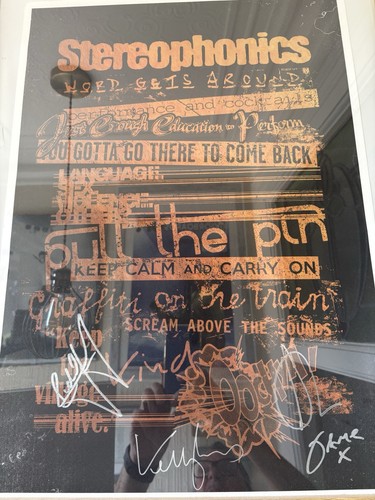 Stereophonics
WORD GETS AROUND
performance and cocktails
Just Enough Education to Perform
YOU GOTTA GO THERE TO COME BACK
LANGUAGE.
SEX.
VIOLENCE.
OTHER?
pull the pin
KEEP CALM AND CARRY ON
Graffiti on the train
SCREAM ABOVE THE SOUNDS
KEEP
Kind
village
alive.
Oochya!
JAMIE
X